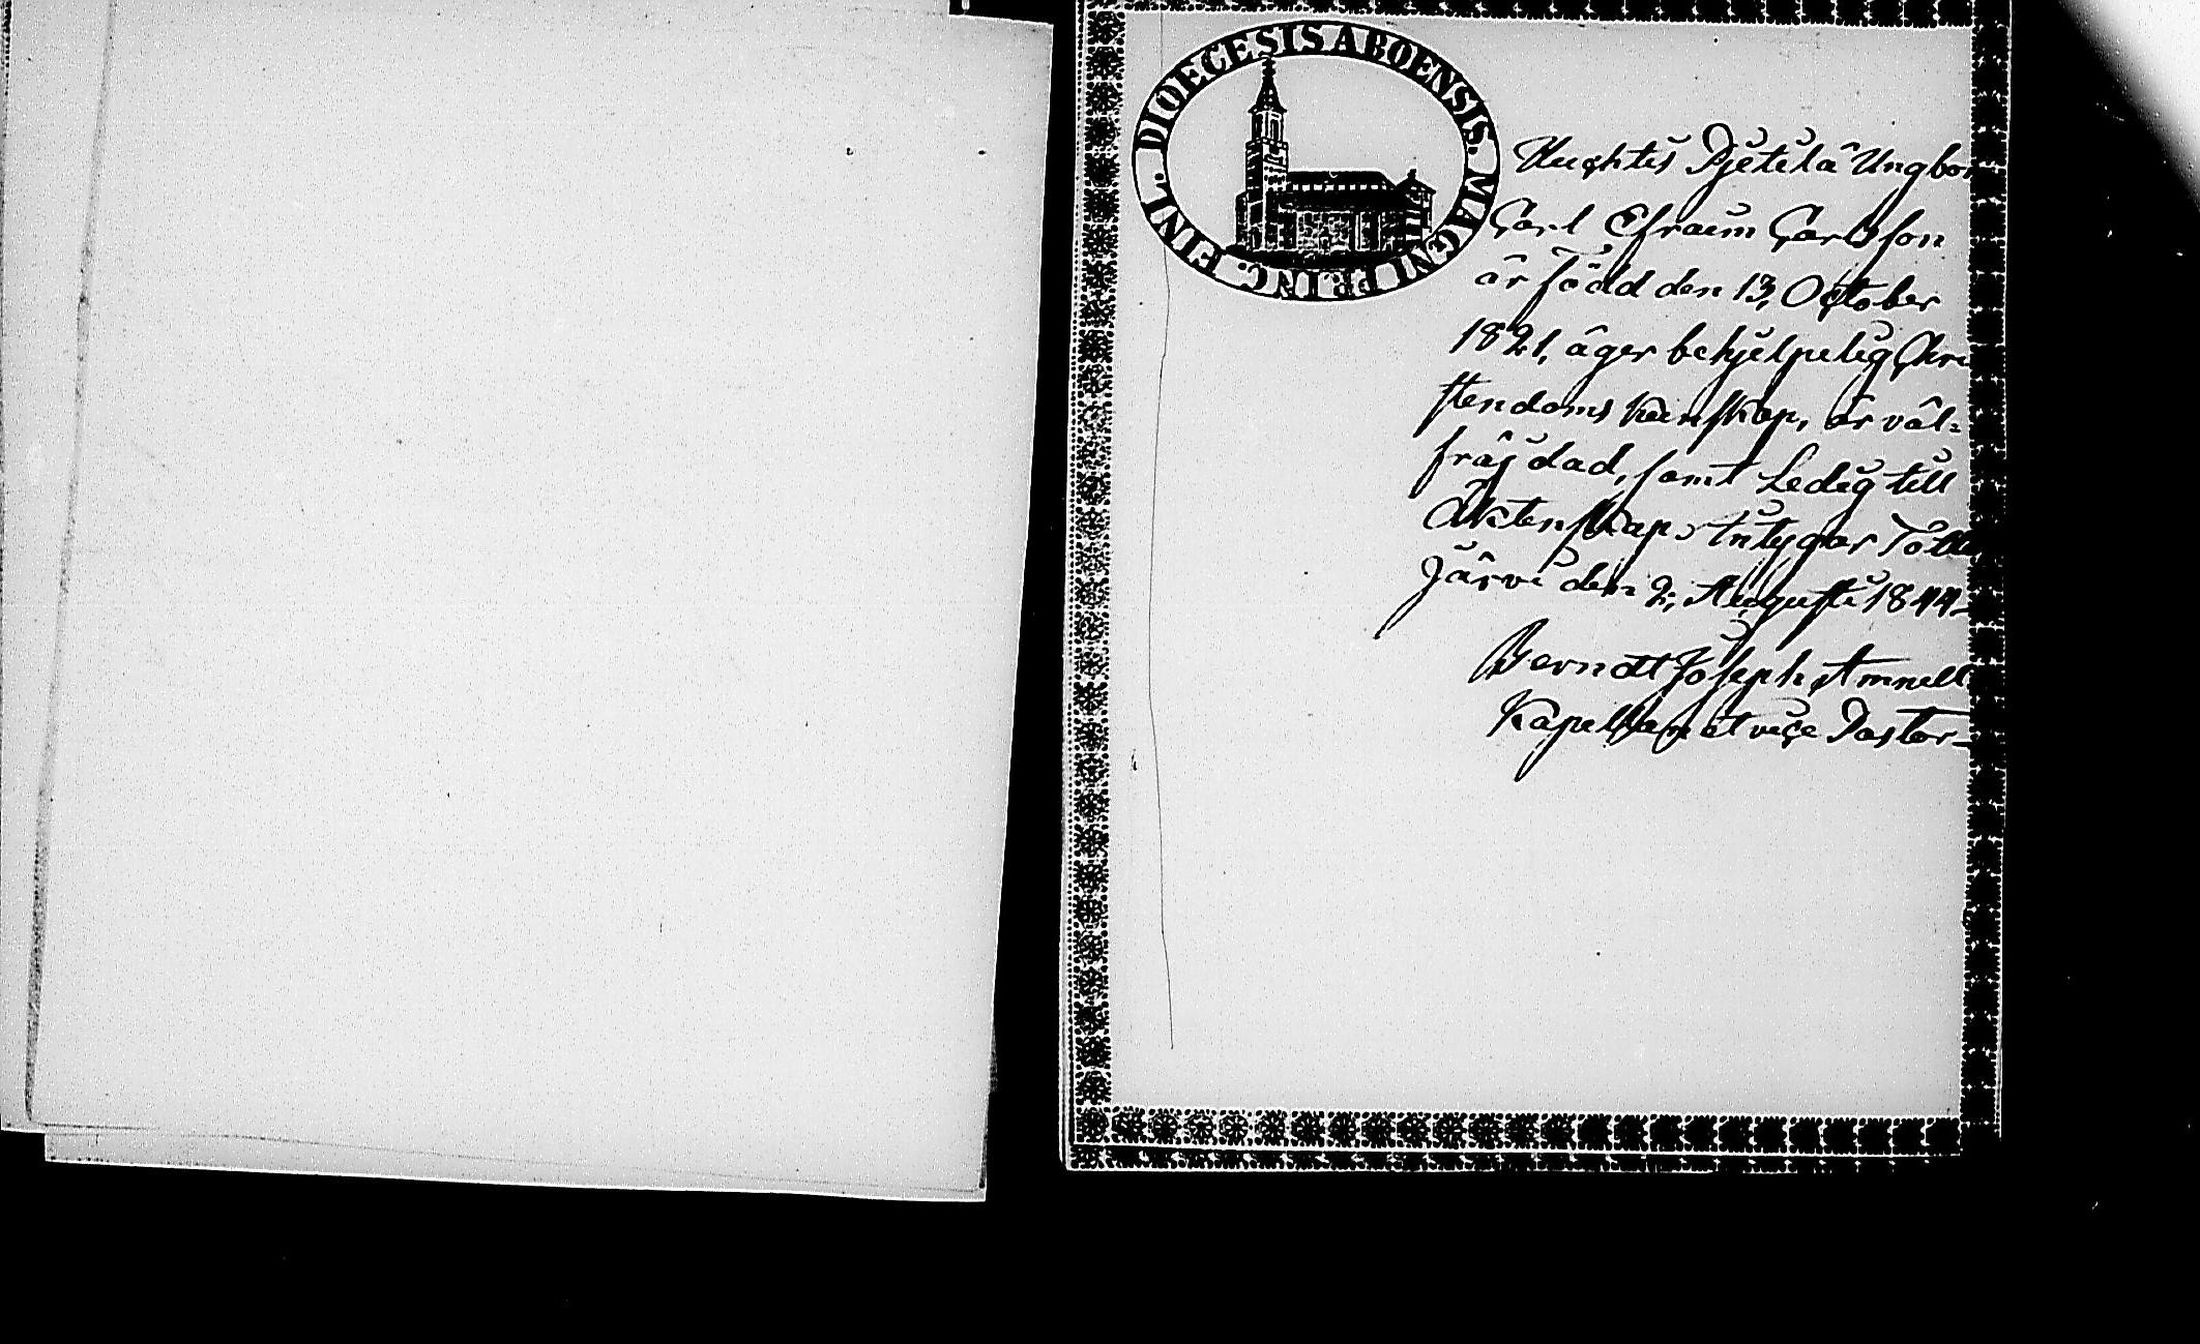 DIOECESIS ABOENSIS. MAGNI PRINC. FINL.
Huchtis Pjetilä Ungbon
Carl Efraim Carlsson
är född den 13, October
1821, äger behjelpelig Chri
stendoms kunskap, är väl=
fräjdad, samt Ledig till
Äktenskap, Intygar Tött
Järvi den 2, Augusti 1844_
Berndt Joseph Amnell
Kapellan et vice Pastor_